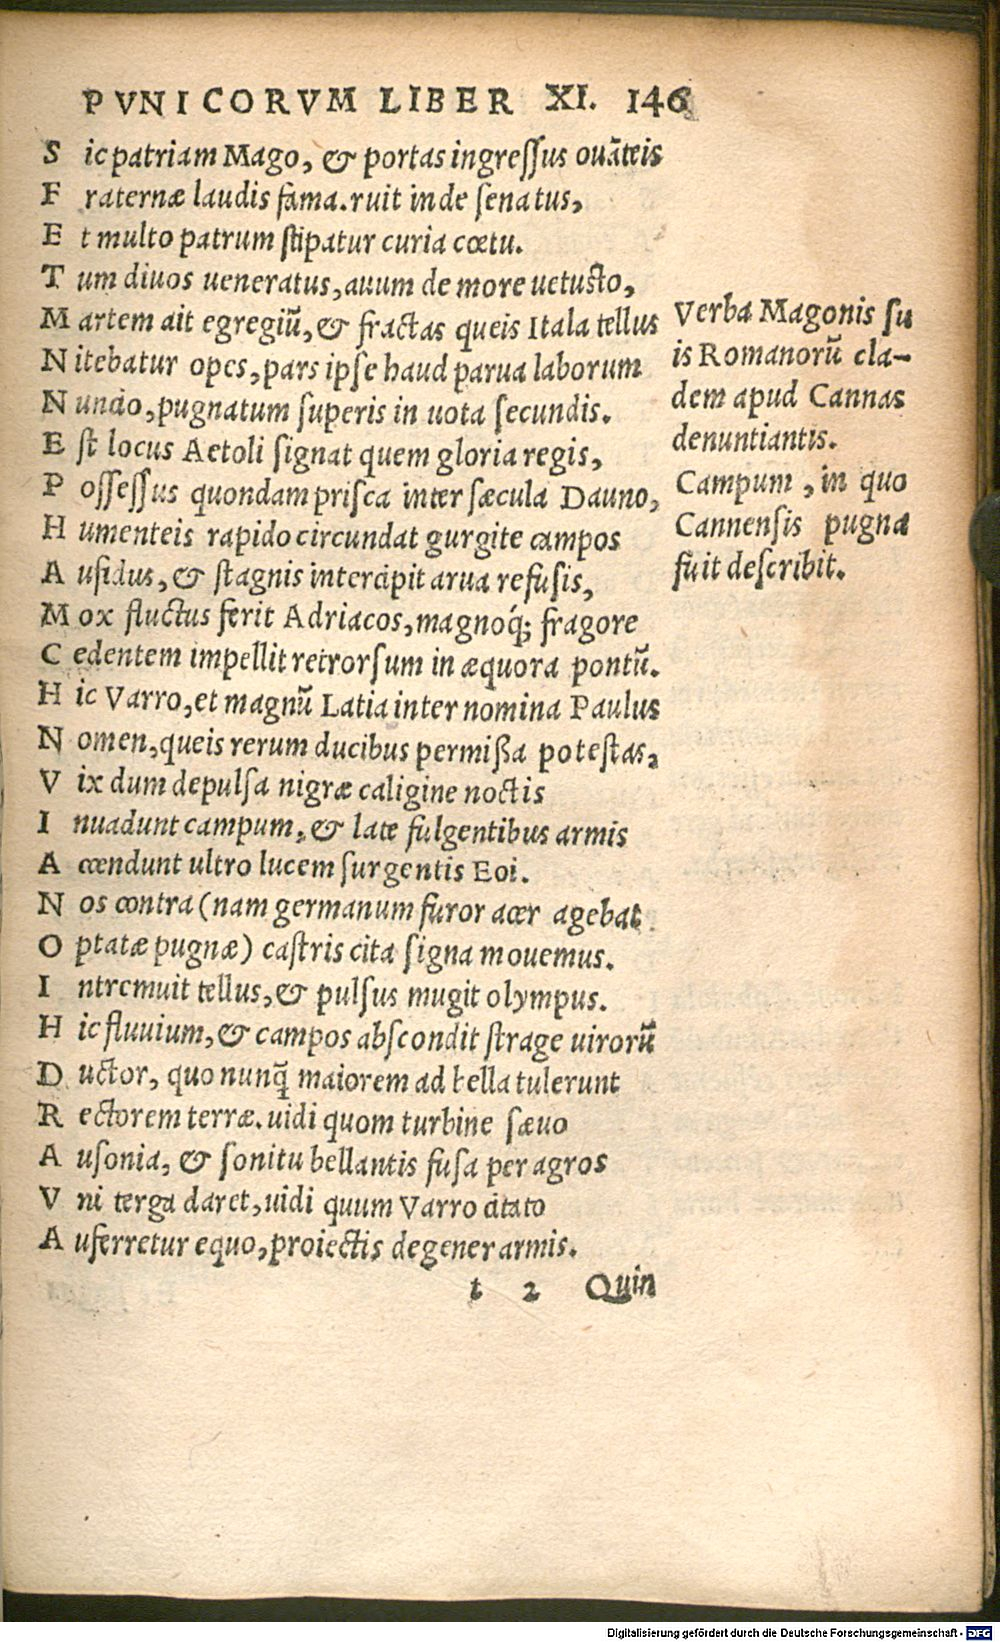 PVNICORVM LIBER XI. 146
S ic patriam Mago, & portas ingressus ouāteis
F raternæ laudis fama. ruit inde senatus,
E t multo patrum stipatur curia cœtu.
T um diuos ueneratus, auum de more uetusto,
M artem ait egregiū, & fractas queis Itala tellus
N itebatur opes, pars ipse haud parua laborum
N uncio, pugnatum superis in uota secundis.
E st locus Aetoli signat quem gloria regis,
P ossessus quondam prisca inter sæcula Dauno,
H umenteis rapido circundat gurgite campos
A ufidus, & stagnis intercipit arua refusis,
M ox fluctus ferit Adriacos, magnoq́; fragore
C edentem impellit retrorsum in æquora pontū.
H ic Varro, et magnū Latia inter nomina Paulus
N omen, queis rerum ducibus permißa potestas,
V ix dum depulsa nigræ caligine noctis
I nuadunt campum, & late fulgentibus armis
A ccendunt ultro lucem surgentis Eoi.
N os contra (nam germanum furor acer agebat
O ptatæ pugnæ) castris cita signa mouemus.
I ntremuit tellus, & pulsus mugit olympus.
H ic fluuium, & campos abscondit strage uirorū
D uctor, quo nunq̄ maiorem ad bella tulerunt
R ectorem terræ. uidi quom turbine sæuo
A usonia, & sonitu bellantis fusa per agros
V ni terga daret, uidi quum Varro citato
A uferretur equo, proiectis degener armis.
t 2 Quin
Verba Magonis su
is Romanorū cla-
dem apud Cannas
denuntiantis.
Campum, in quo
Cannensis pugna
fuit describit.
Digitalisierung gefördert durch die Deutsche Forschungsgemeinschaft - DFG